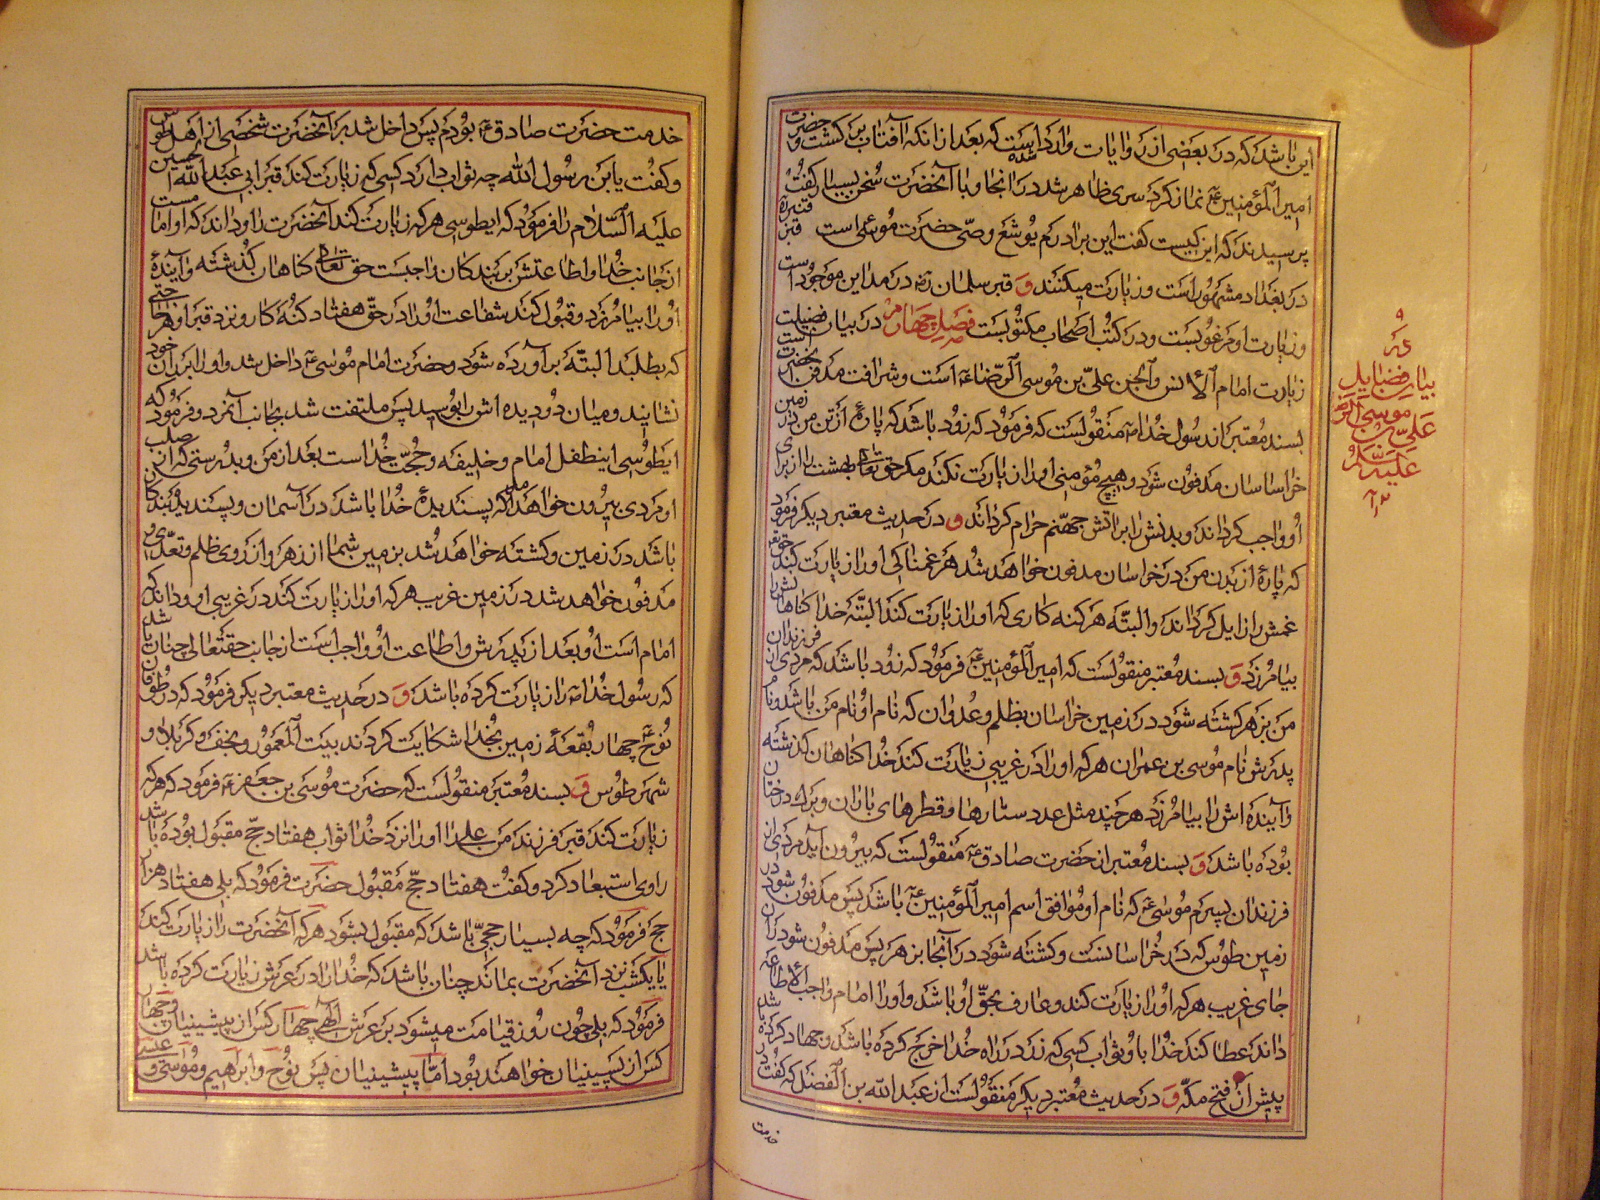 این باشد که در بعضی از روایات وارد شده است که بعد از انکه آفتاب بر کشت و حضرت
امیر المؤمنین ع نماز کرد سری ظاهر شد در انجا و با آنحضرت سخن بسیار کفت قنبره
پرسیدند که این کیست کفت این برادرم یوشع وصیّ حضرت موسی است قبر
در بغداد مشهور است و زیارت میکنند و قبر سلمان ره در مداین موجود است
و زیارت او مرغوبست و در کتب اصحاب مکتوبست فصل چهارم در بیان فضیلت
زیارت امام الأنس والجن علیّ بن موسی الرضا ع است و شرافت مدفن آنحضرت
بسند معتبر از رسول خدا ص منقولست که فرمود که زود باشد که پارهٔ از تن من در زمین
خراسان مدفون شود و هیچ مؤمنی او را زیارت نکند مکر حق تعالی بهشت را از برای
او واجب کرداند و بدنش را بر آتش جهنّم حرام کرداند و در حدیث معتبر دیکر فرمود
که پارهٔ از بدن من در خراسان مدفون خواهد شد هر غمناکی او را زیارت کند حق تعالی
غمش را زایل کرداند و البتّه هر کنه کاری که او را زیارت کند البتّه خدا کناهانش را
بیامرزد و بسند معتبر منقولست که امیر المؤمنین ع فرمود که زود باشد که مردی از فرزندان
من بزهر کشته شود در زمین خراسان بظلم و عدوان که نام او نام من باشد و نام
پدرش نام موسی بن عمران هر که او را در غریبی زیارت کند خدا کناهان کذشته
و آینده اش را بیامرزد هر چند مثل عدد ستارها و قطرهای باران و برك درختان
بوده باشد و بسند معتبر از حضرت صادق ع منقولست که بیرون آید مردی از
فرزندان پسرم موسی ع که نام او موافق اسم امیر المؤمنین ع باشد پس مدفون شود در
زمین طوس که در خراسانست و کشته شود در آنجا بزهر پس مدفون شود در آن
جای غریب هر که او را زیارت کند و عارف بحقّ او باشد و او را امام واجب الأطاعه
داند عطا کند خدا باو ثواب کسی که زر در راه خدا خرج کرده باشد و جهاد کرده باشد
پیش از فتح مکّه و در حدیث معتبر دیکر منقولست از عبد الله بن الفضل که کفت در
خدمت
بیان فضایل
علیّ بن موسی الرضا
علیه السلام
خدمت حضرت صادق ع بودم پس داخل شد بر آنحضرت شخصی از اهل طوس
و کفت یا بن رسول الله چه ثواب دارد کسی که زیارت کند قبر ابی عبد الله الحسین
علیه السّلام را فرمود که ایطوسی هر که زیارت کند آنحضرت را و داند که او امامست
از جانب خدا و اطاعتش بر بندکان واجبست حق تعالی کناهان کذشته و آیندهٔ
او را بیامرزد و قبول کند شفاعت او را در حقّ هفتاد کنه کار و نزد قبر او هر حاجتی
که بطلبد البتّه برآورده شود و حضرت امام موسی ع داخل شد و او را بر ران خود
نشانیند و میان دو دیده اش را بوسید پس ملتفت شد بجانب آنمرد و فرمود که
ایطوسی اینطفل امام و خلیفه و حجّت خداست بعد از من و بدرستی که از صلب
او مردی بیرون خواهد آمد که پسندیدهٔ خدا باشد در آسمان و پسندیدهٔ بندکان
باشد در زمین و کشته خواهد شد بزمین شما از زهر و از روی ظلم و تعدّی و
مدفون خواهد شد در زمین غریب هر که او را زیارت کند در غریبی او و داند که
امام است او بعد از پدرش و اطاعت او واجب است از جانب حقتعالی چنان باشد
که رسول خدا ص را زیارت کرده باشد و در حدیث معتبر دیکر فرمود که در طوفان
نوح ع چهار بقعهٔ زمین بخدا شکایت کردند بیت المعمور و نجف و کربلا و
شهر طوس و بسند معتبر منقولست که حضرت موسی بن جعفر ع فرمود که هر که
زیارت کند قبر فرزند من علی را او را نزد خدا ثواب هفتاد حجّ مقبول بوده باشد
راوی استبعاد کرد و کفت هفتاد حجّ مقبول حضرت فرمود که بلی هفتاد هزار
حج فرمود که چه بسیار حجّی باشد که مقبول نشود هر که آنحضرت را زیارت کند
یا یکشب نزد آنحضرت بماند چنان باشد که خدا را در عرش زیارت کرده باشد
فرمود که بلی چون روز قیامت میشود بر عرش الهی چهار کس از پیشینیان و چهار
کس از پسینیان خواهند بود امّا پیشینیان پس نوح و ابراهیم و موسی و عیسی